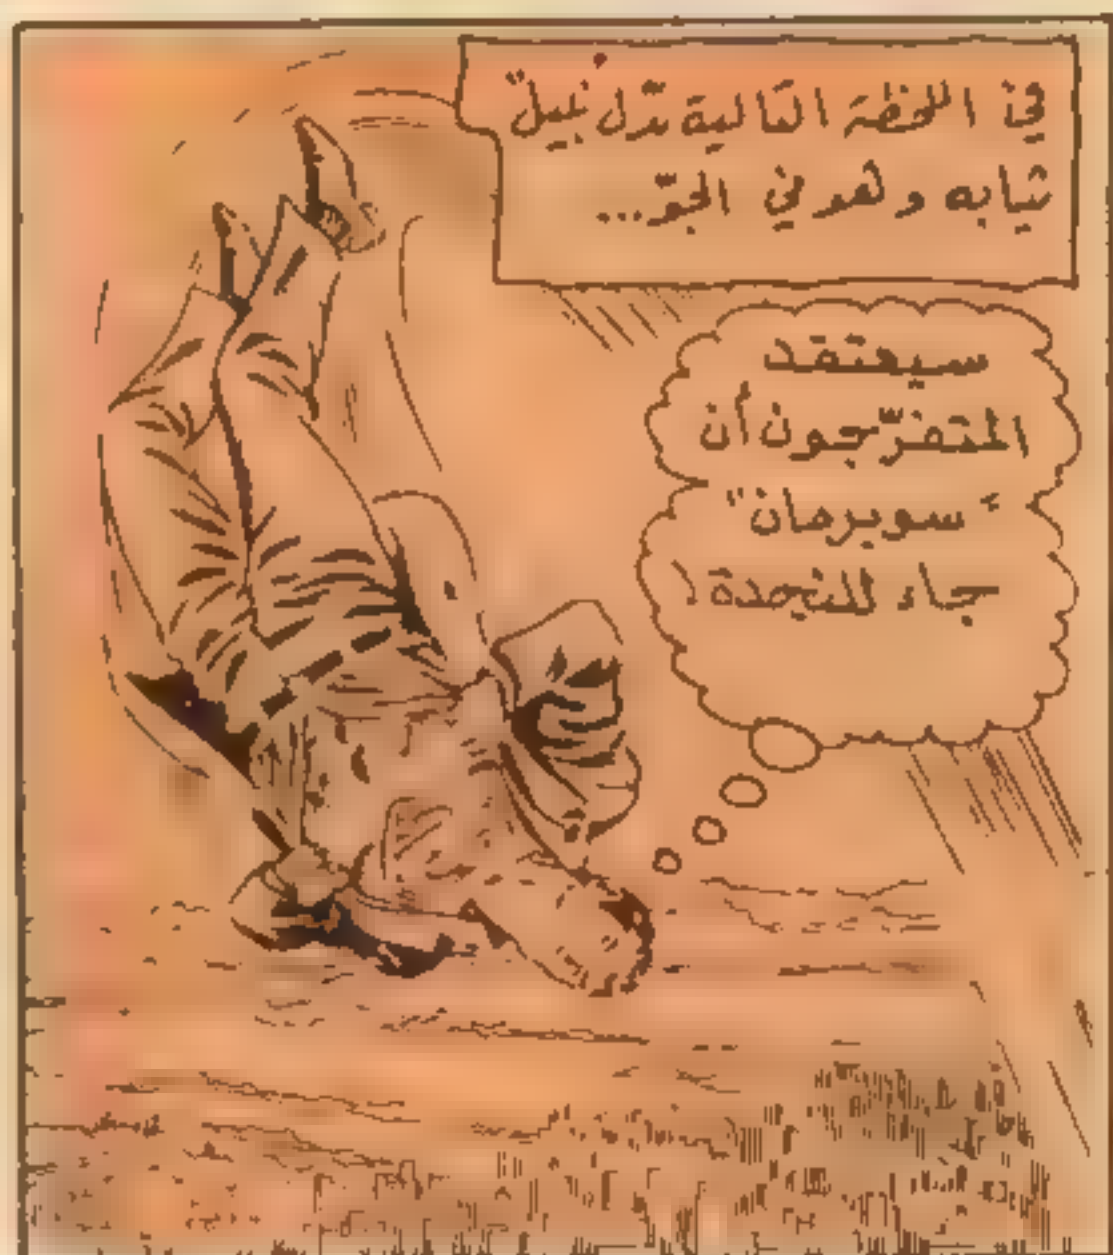 في اللحظة التالية بدّل "نبيل"
ثيابه وهو في الجوّ...
سيعتقد
المتفرّجون أن
"سوبرمان"
جاء للنجدة!